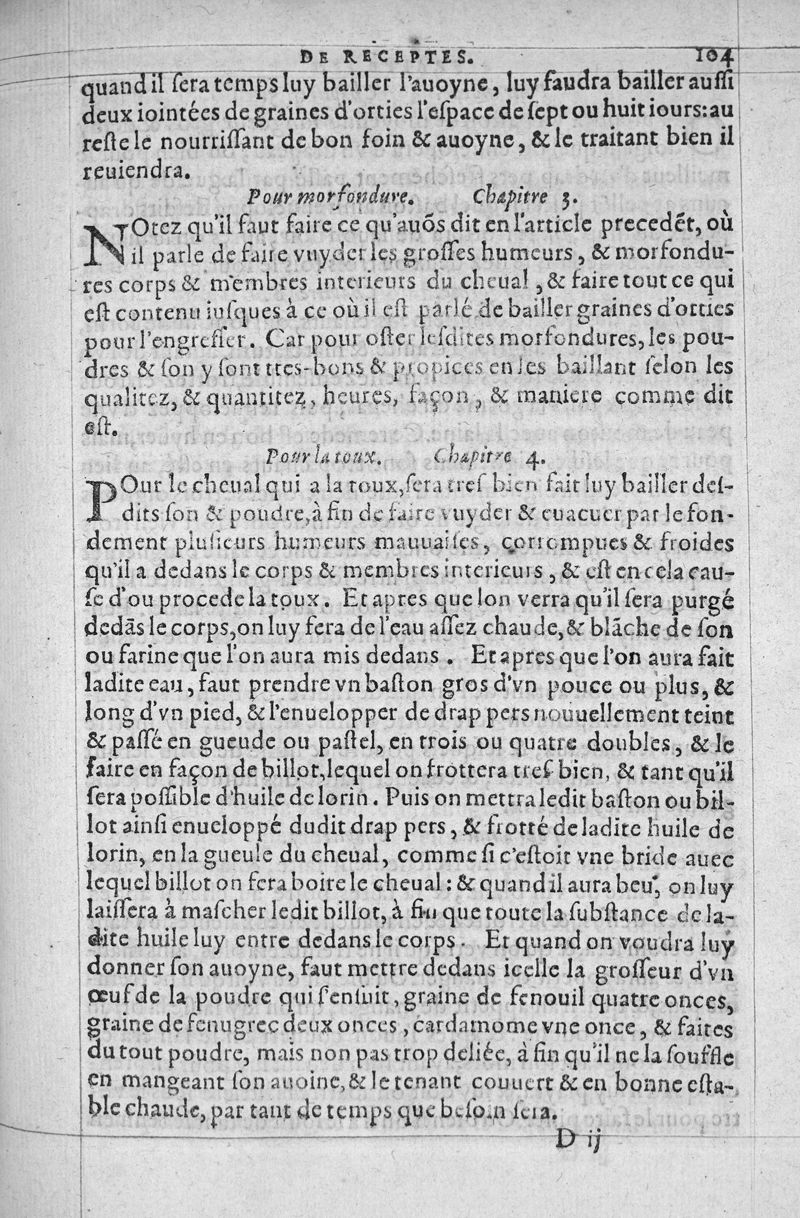 DE RECEPTES. 104
quand il ſera temps luy bailler l'auoyne, luy faudra bailler auſſi
deux iointées de graines d'orties l'eſpace de ſept ou huit iours: au
reſte le nourriſſant de bon foin & auoyne, & le traitant bien il
reuiendra.
Pour morfondure. Chapitre 3.
NOtez qu'il faut faire ce qu'auõs dit en l'article precedẽt, où
il parle de faire vuyder les groſſes humeurs, & morfondu-
res corps & membres interieurs du cheual, & faire tout ce qui
eſt contenu iuſques à ce où il eſt parlé de bailler graines d'orties
pour l'engreſſer. Car pour oſter leſdites morfondures, les pou-
dres & ſon y ſont tres-bons & propices en les baillant ſelon les
qualitez, & quantitez, heures, façon, & maniere comme dit
eſt.
Pour la toux. Chapitre 4.
POur le cheual qui a la toux, ſera treſ bien fait luy bailler deſ-
dits ſon & poudre, à fin de faire vuyder & euacuer par le fon-
dement pluſieurs humeurs mauuaiſes, corrompues & froides
qu'il a dedans le corps & membres interieurs, & eſt en cela cau-
ſe d'ou procede la toux. Et apres que lon verra qu'il ſera purgé
dedãs le corps, on luy fera de l'eau aſſez chaude, & blãche de ſon
ou farine que l'on aura mis dedans. Et apres que l'on aura fait
ladite eau, faut prendre vn baſton gros d'vn pouce ou plus, &
long d'vn pied, & l'enuelopper de drap pers nouuellement teint
& paſſé en gueude ou paſtel, en trois ou quatre doubles, & le
faire en façon de billot, lequel on frottera treſ bien, & tant qu'il
ſera poſſible d'huile de lorin. Puis on mettra ledit baſton ou bil-
lot ainſi enueloppé dudit drap pers, & frotté de ladite huile de
lorin, en la gueule du cheual, comme ſi c'eſtoit vne bride auec
lequel billot on fera boire le cheual: & quand il aura beu, on luy
laiſſera à maſcher ledit billot, à fin que toute la ſubſtance de la-
dite huile luy entre dedans le corps. Et quand on voudra luy
donner ſon auoyne, faut mettre dedans icelle la groſſeur d'vn
œuf de la poudre qui ſenſuit, graine de fenouil quatre onces,
graine de fenugrec deux onces, cardamome vne once, & faites
du tout poudre, mais non pas trop deliée, à fin qu'il ne la ſouffle
en mangeant ſon auoine, & le tenant couuert & en bonne eſta-
ble chaude, par tant de temps que beſoin ſera.
D ij